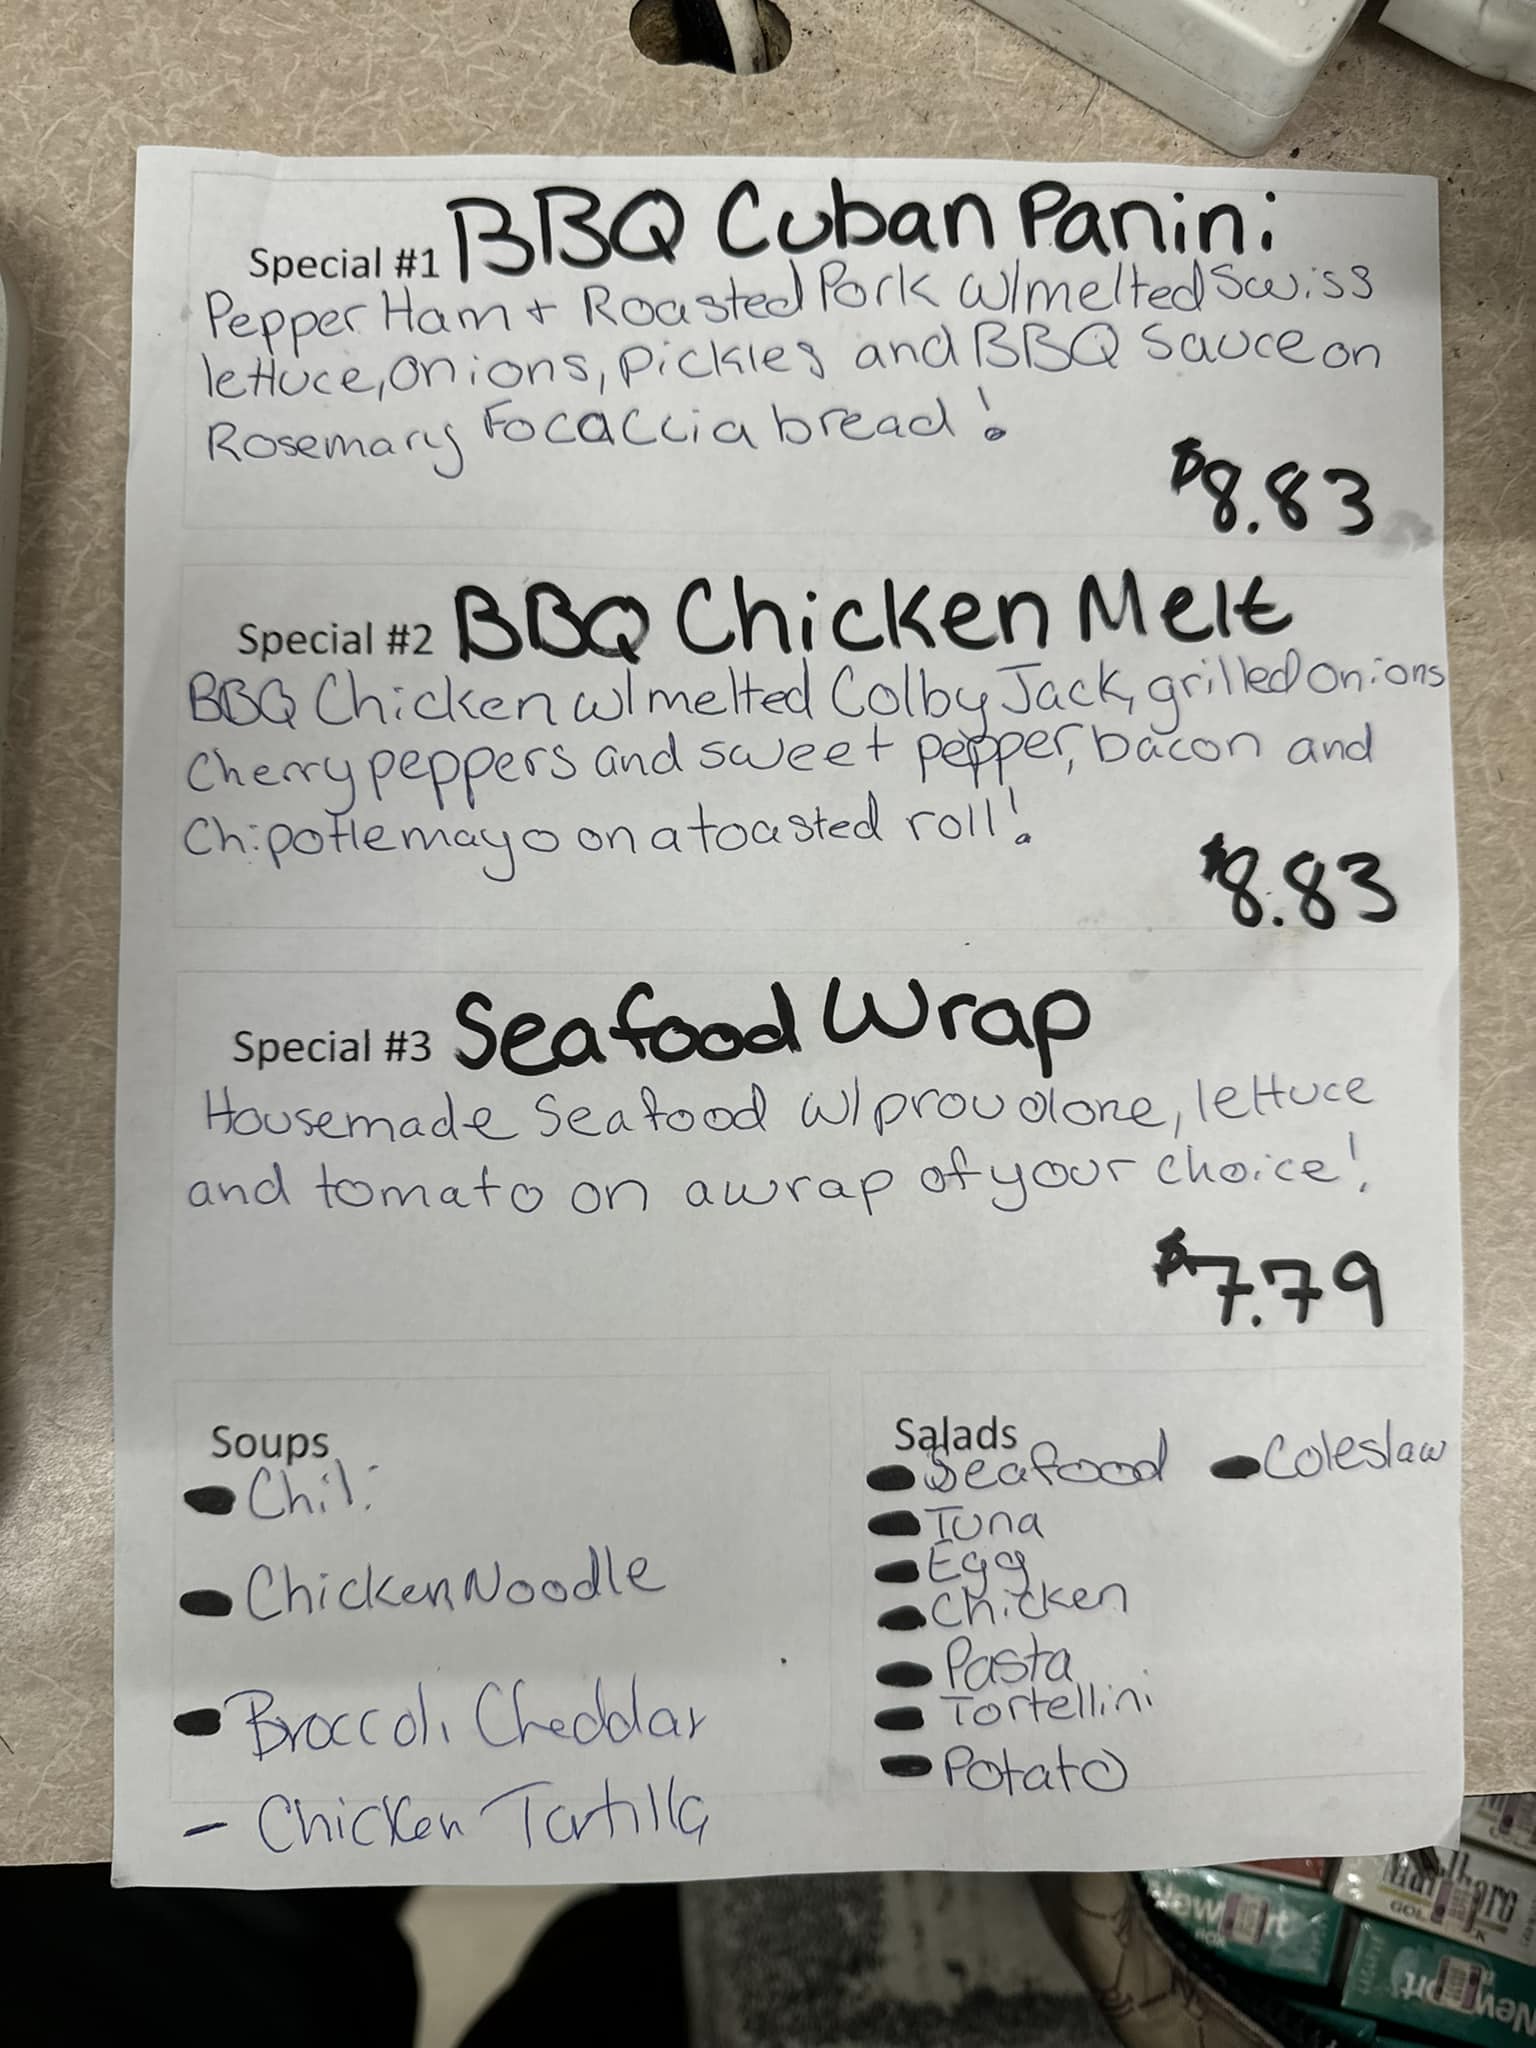 Special #1 BBQ Cuban Panini
Pepper Ham + Roasted Pork w/melted Swiss
lettuce, onions, pickles and BBQ Sauce on
Rosemary Focaccia bread!
$8.83
Special #2 BBQ Chicken Melt
BBQ Chicken w/melted Colby Jack, grilled onions
Cherry peppers and sweet pepper, bacon and
Chipotle mayo on a toasted roll!
$8.83
Special #3 Seafood Wrap
Housemade Seafood w/provolone, lettuce
and tomato on a wrap of your choice!
$7.79
Soups
Chili
Chicken Noodle
Broccoli Cheddar
- Chicken Tortilla
Salads
Seafood
Tuna
Egg
Chicken
Pasta
Tortellini
Potato
Coleslaw
Marlboro
GOLD
Newport
BOX
Newport